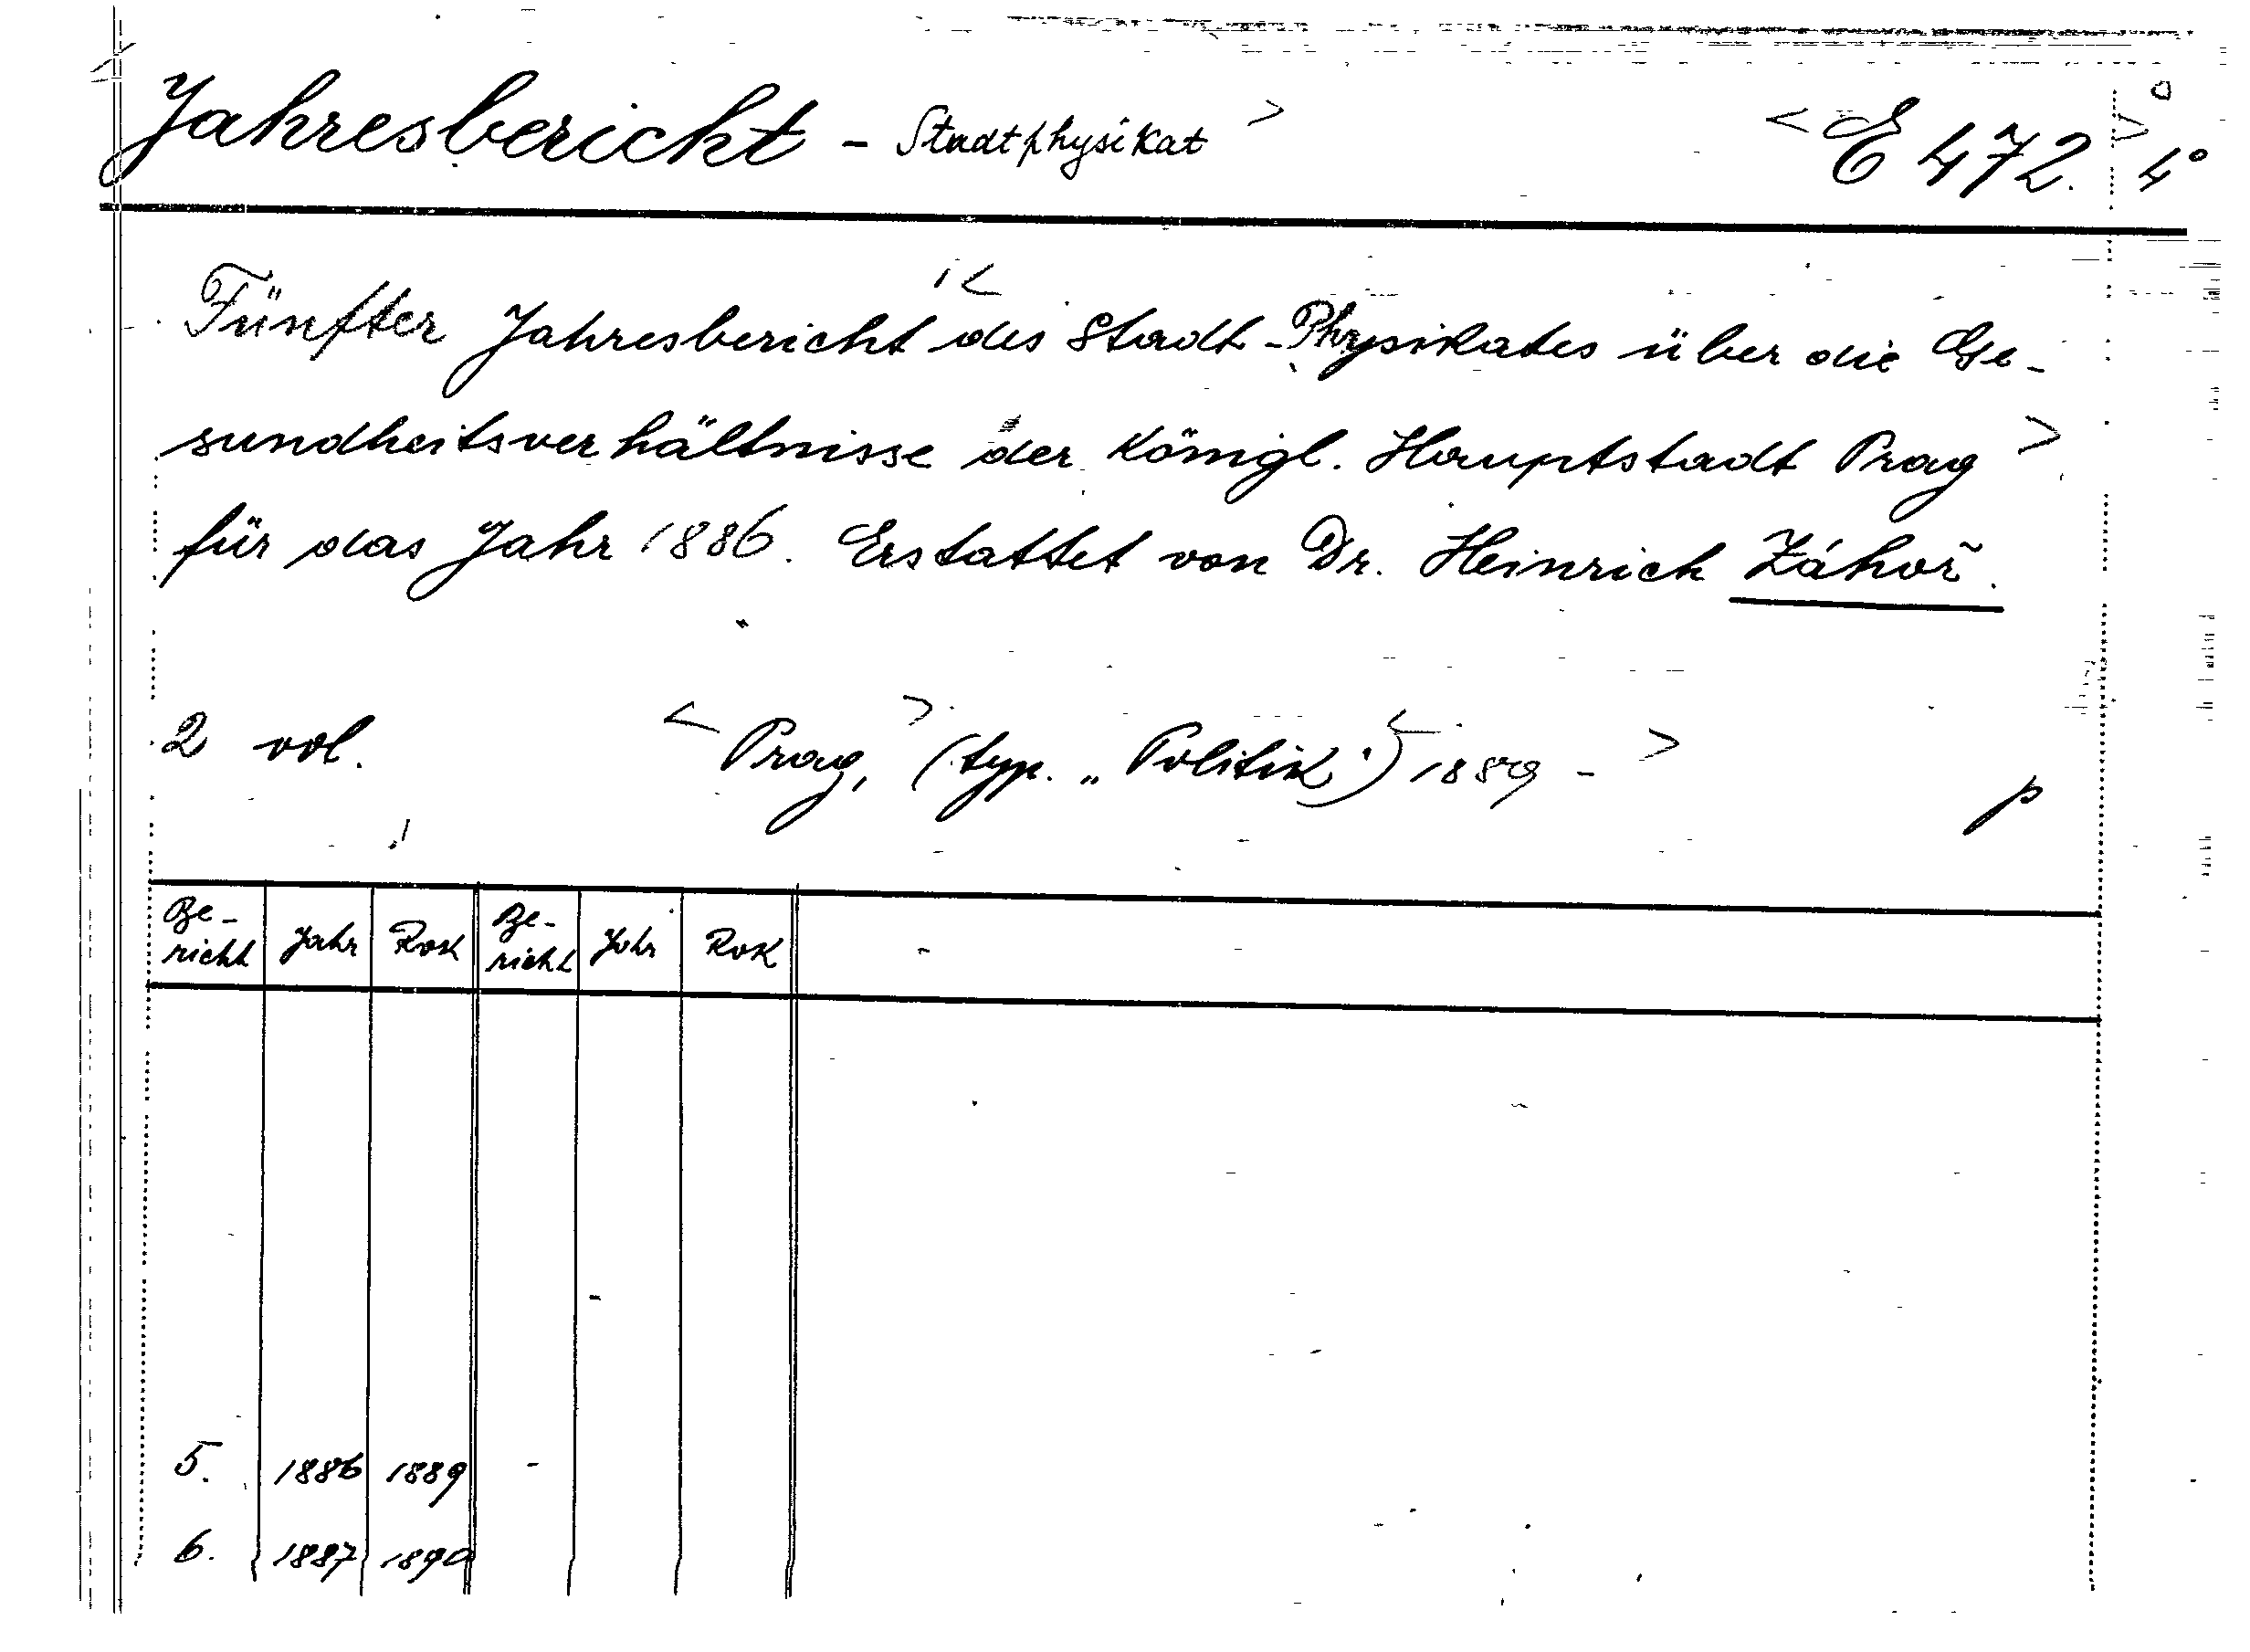 Jahresbericht - Stadtphysikat > < E 472. > 4°
Fünfter Jahresbericht des Stadt-Physikates über die Ge-
sundheitsverhältnisse der königl. Hauptstadt Prag >
für das Jahr 1886. Erstattet von Dr. Heinrich Záhoř.
2 vol. < Prag, > (typ. „Politik") < 1889 - >
p
Be- Be-
richt Jahr Rok richt Jahr Rok
5. 1886 1889 -
6. 1887 1890